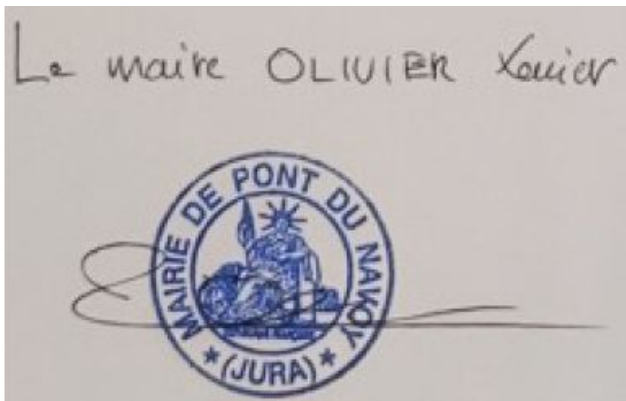 Le maire OLIVIER Xavier
MAIRIE DE PONT DU NAVOY
* (JURA) *